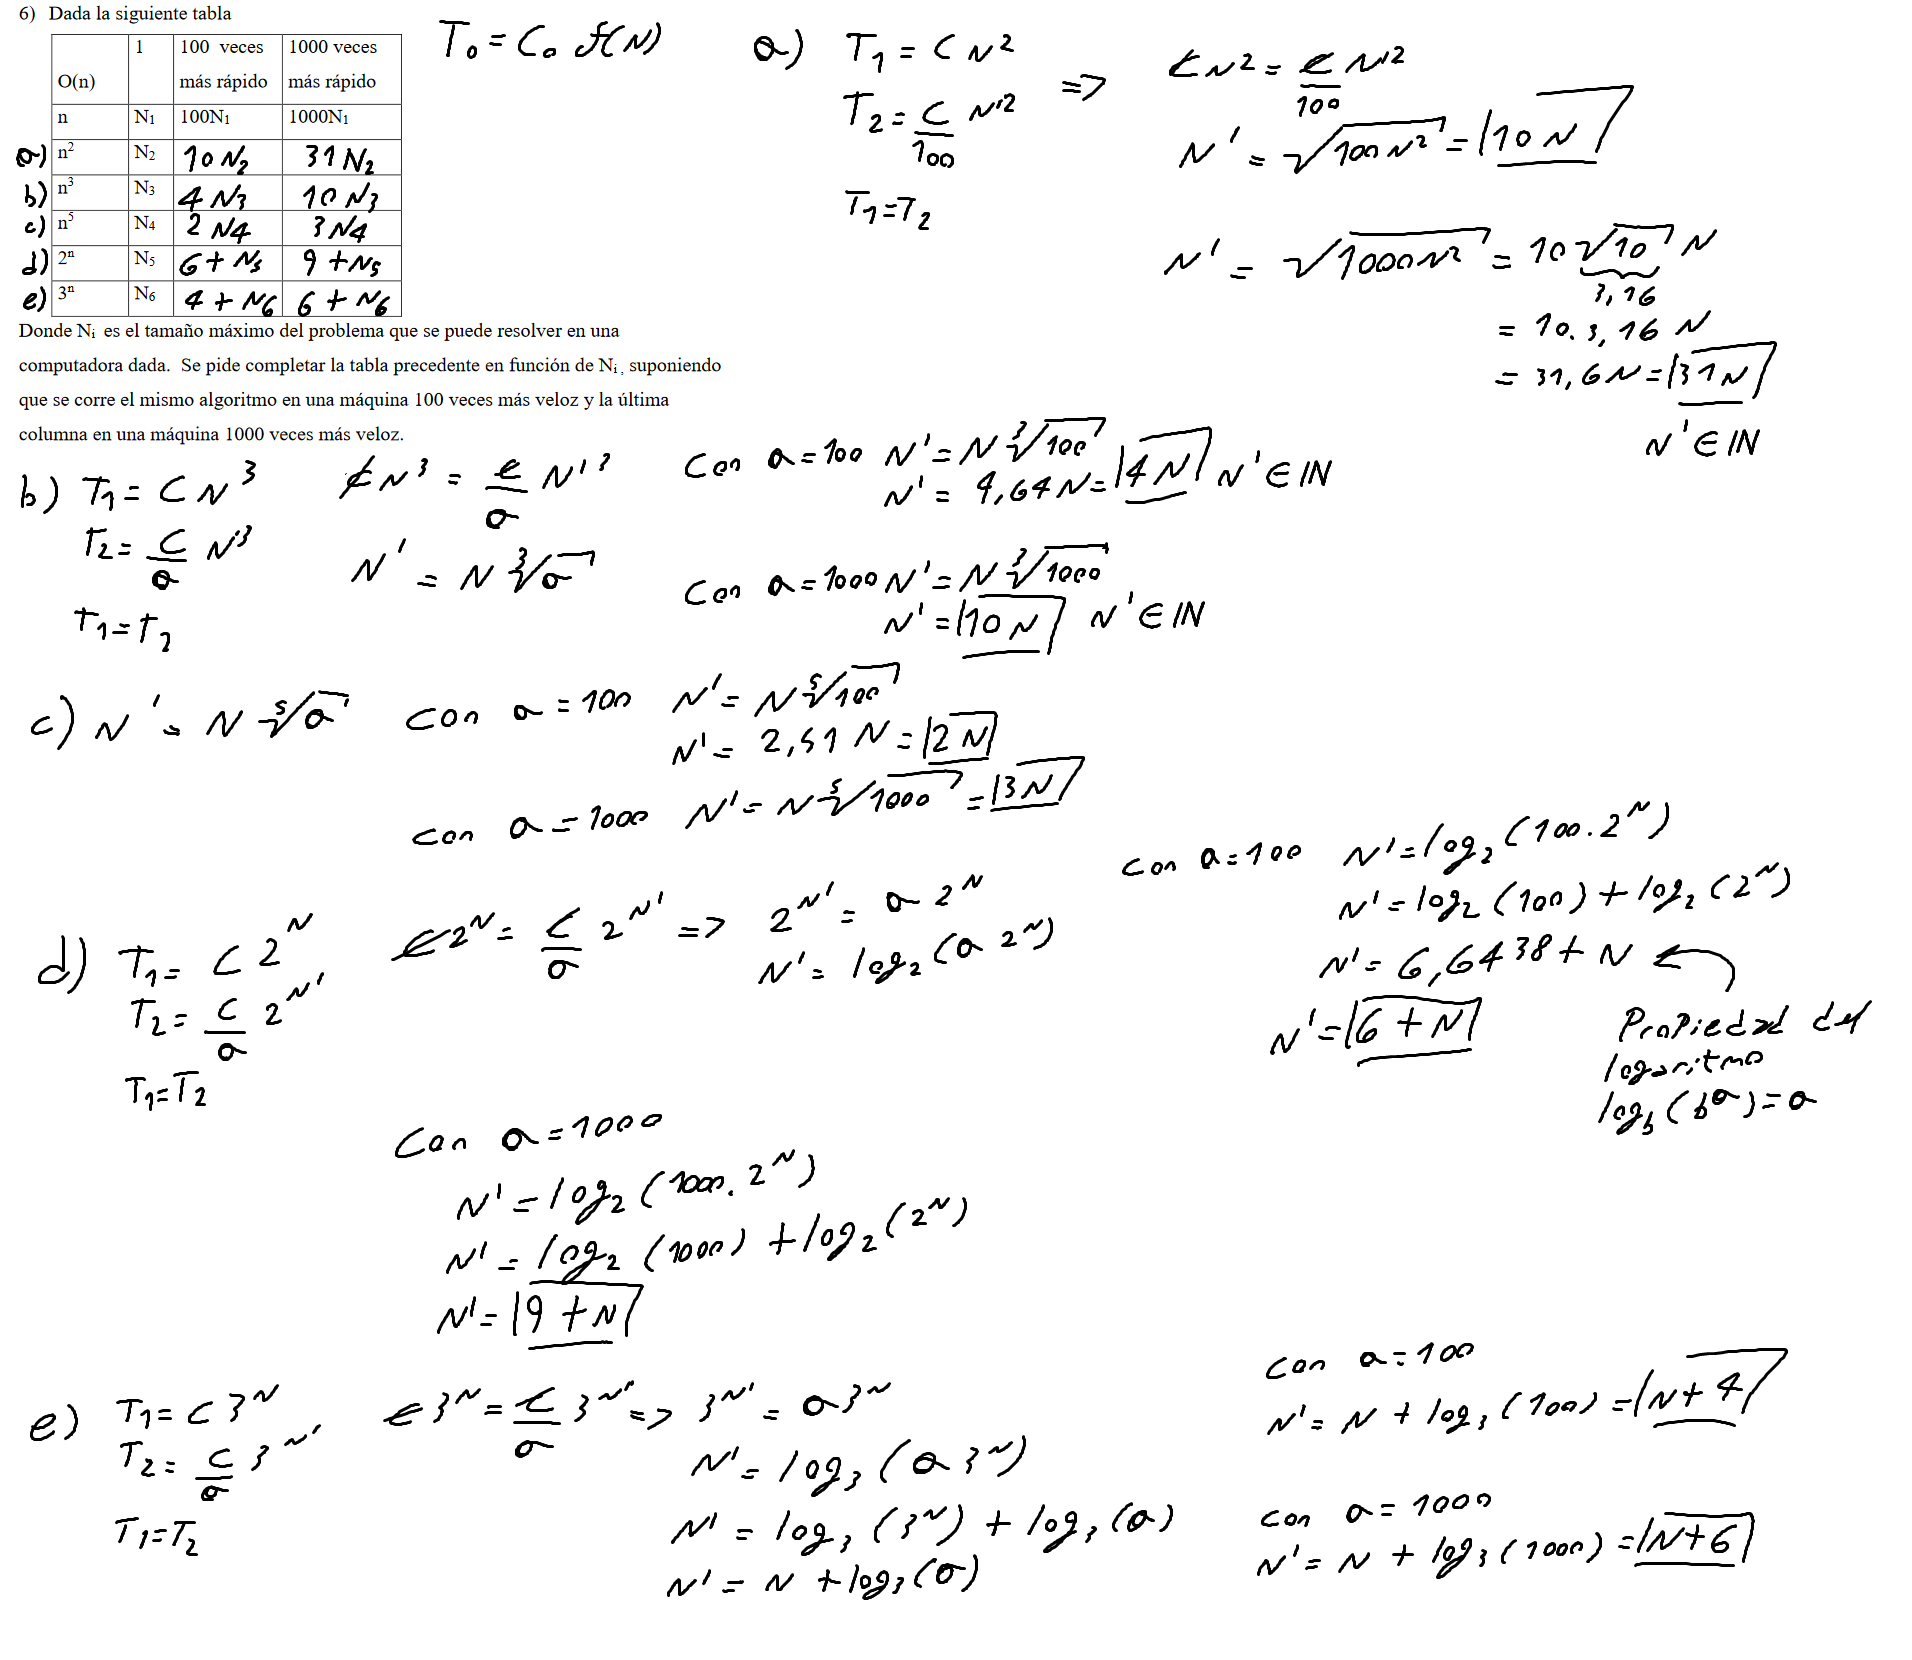 6) Dada la siguiente tabla
O(n) | 1 | 100 veces más rápido | 1000 veces más rápido
n | N₁ | 100N₁ | 1000N₁
a) n² | N₂ | 10 N₂ | 31 N₂
b) n³ | N₃ | 4 N₃ | 10 N₃
c) n⁵ | N₄ | 2 N₄ | 3 N₄
d) 2ⁿ | N₅ | 6 + N₅ | 9 + N₅
e) 3ⁿ | N₆ | 4 + N₆ | 6 + N₆
Donde Nᵢ es el tamaño máximo del problema que se puede resolver en una
computadora dada. Se pide completar la tabla precedente en función de Nᵢ, suponiendo
que se corre el mismo algoritmo en una máquina 100 veces más veloz y la última
columna en una máquina 1000 veces más veloz.
T₀ = C₀ f(N)
a) T₁ = C N²
T₂ = C/100 N'²
T₁ = T₂
=> C N² = C/100 N'²
N' = √(100 N²) = |10 N|
N' = √(1000 N²) = 10 √10 N
3,16
= 10. 3,16 N
= 31,6 N = |31 N|
N' ∈ IN
b) T₁ = C N³
T₂ = C/a N'³
T₁ = T₂
C N³ = C/a N'³
N' = N ∛a
Con a = 100 N' = N ∛100
N' = 4,64 N = |4 N| N' ∈ IN
Con a = 1000 N' = N ∛1000
N' = |10 N| N' ∈ IN
c) N' = N ⁵√a
con a = 100 N' = N ⁵√100
N' = 2,51 N = |2 N|
con a = 1000 N' = N ⁵√1000 = |3 N|
d) T₁ = C 2^N
T₂ = C/a 2^N'
T₁ = T₂
C 2^N = C/a 2^N' => 2^N' = a 2^N
N' = log₂ (a 2^N)
con a = 100 N' = log₂ (100 . 2^N)
N' = log₂ (100) + log₂ (2^N)
N' = 6,6438 + N
N' = |6 + N|
Propiedad del
logaritmo
log_b (b^a) = a
Con a = 1000
N' = log₂ (1000. 2^N)
N' = log₂ (1000) + log₂ (2^N)
N' = |9 + N|
e) T₁ = C 3^N
T₂ = C/a 3^N'
T₁ = T₂
C 3^N = C/a 3^N' => 3^N' = a 3^N
N' = log₃ (a 3^N)
N' = log₃ (3^N) + log₃ (a)
N' = N + log₃ (a)
con a = 100
N' = N + log₃ (100) = |N + 4|
con a = 1000
N' = N + log₃ (1000) = |N + 6|